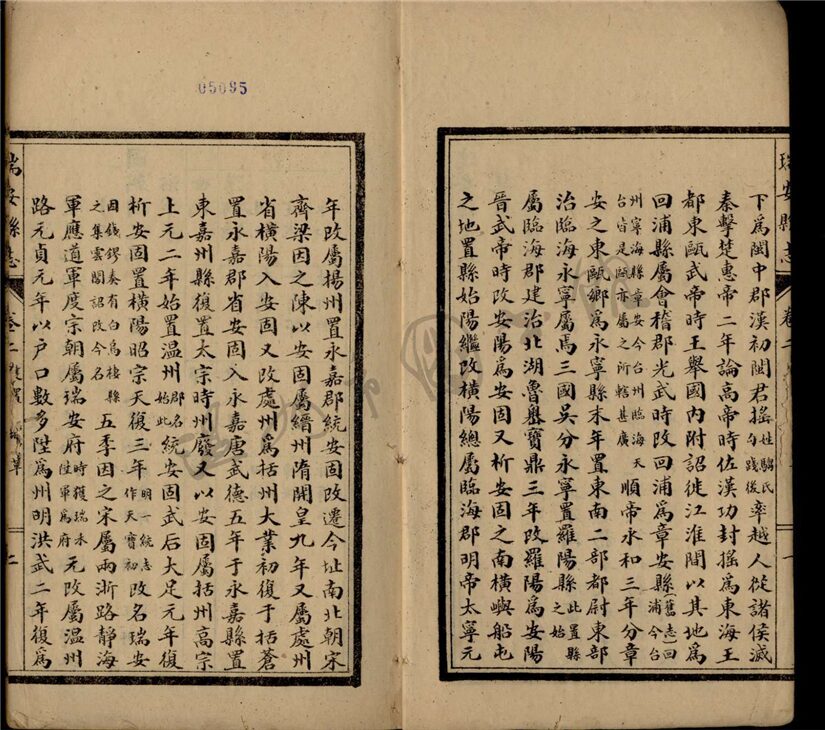 下爲閩中郡漢初閩君搖姓騶氏勾踐後率越人從諸侯滅
秦擊楚惠帝二年論高帝時佐漢功封搖爲東海王
都東甌武帝時王舉國內附詔徙江淮間以其地爲
回浦縣屬會稽郡光武時改回浦爲章安縣（舊志）回浦今台
州寧海縣章安今台州臨海天台皆是甌亦屬之所轄甚廣順帝永和三年分章
安之東甌鄉爲永寧縣末年置東南二部都尉東部
治臨海永寧屬焉三國吳分永寧置羅陽縣此置縣之始
屬臨海郡建治北湖魯嶴寶鼎三年改羅陽爲安陽
晉武帝時改安陽爲安固又析安固之南橫嶼船屯
之地置縣始陽繼改橫陽總屬臨海郡明帝太寧元
年改屬揚州置永嘉郡統安固改遷今址南北朝宋
齊梁因之陳以安固屬縉州隋開皇九年又屬處州
省橫陽入安固又改處州爲括州大業初復于括蒼
置永嘉郡省安固入永嘉唐武德五年于永嘉縣置
東嘉州縣復置太宗時州廢又以安固屬括州高宗
上元二年始置温州郡名始此統安固武后大足元年復
析安固置橫陽昭宗天復三年明一統志作天寶初改名瑞安
因錢鏐奏有白烏棲縣之集雲閣詔改今名五季因之宋屬兩浙路靜海
軍應道軍度宗朝屬瑞安府時獲瑞木陞軍爲府元改屬温州
路元貞元年以戶口數多陞爲州明洪武二年復爲
瑞安縣志
卷二
二
瑞安縣志
卷二
05085